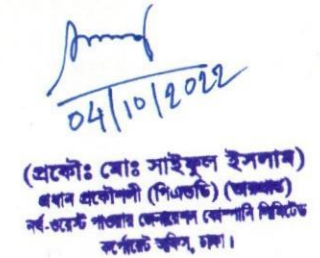 04/10/2022
(প্রকৌঃ মোঃ সাইফুল ইসলাম)
প্রধান প্রকৌশলী (পিএন্ডডি)
নর্থ-ওয়েস্ট পাওয়ার জেনারেশন কোম্পানি লিমিটেড
কর্পোরেট অফিস, ঢাকা।